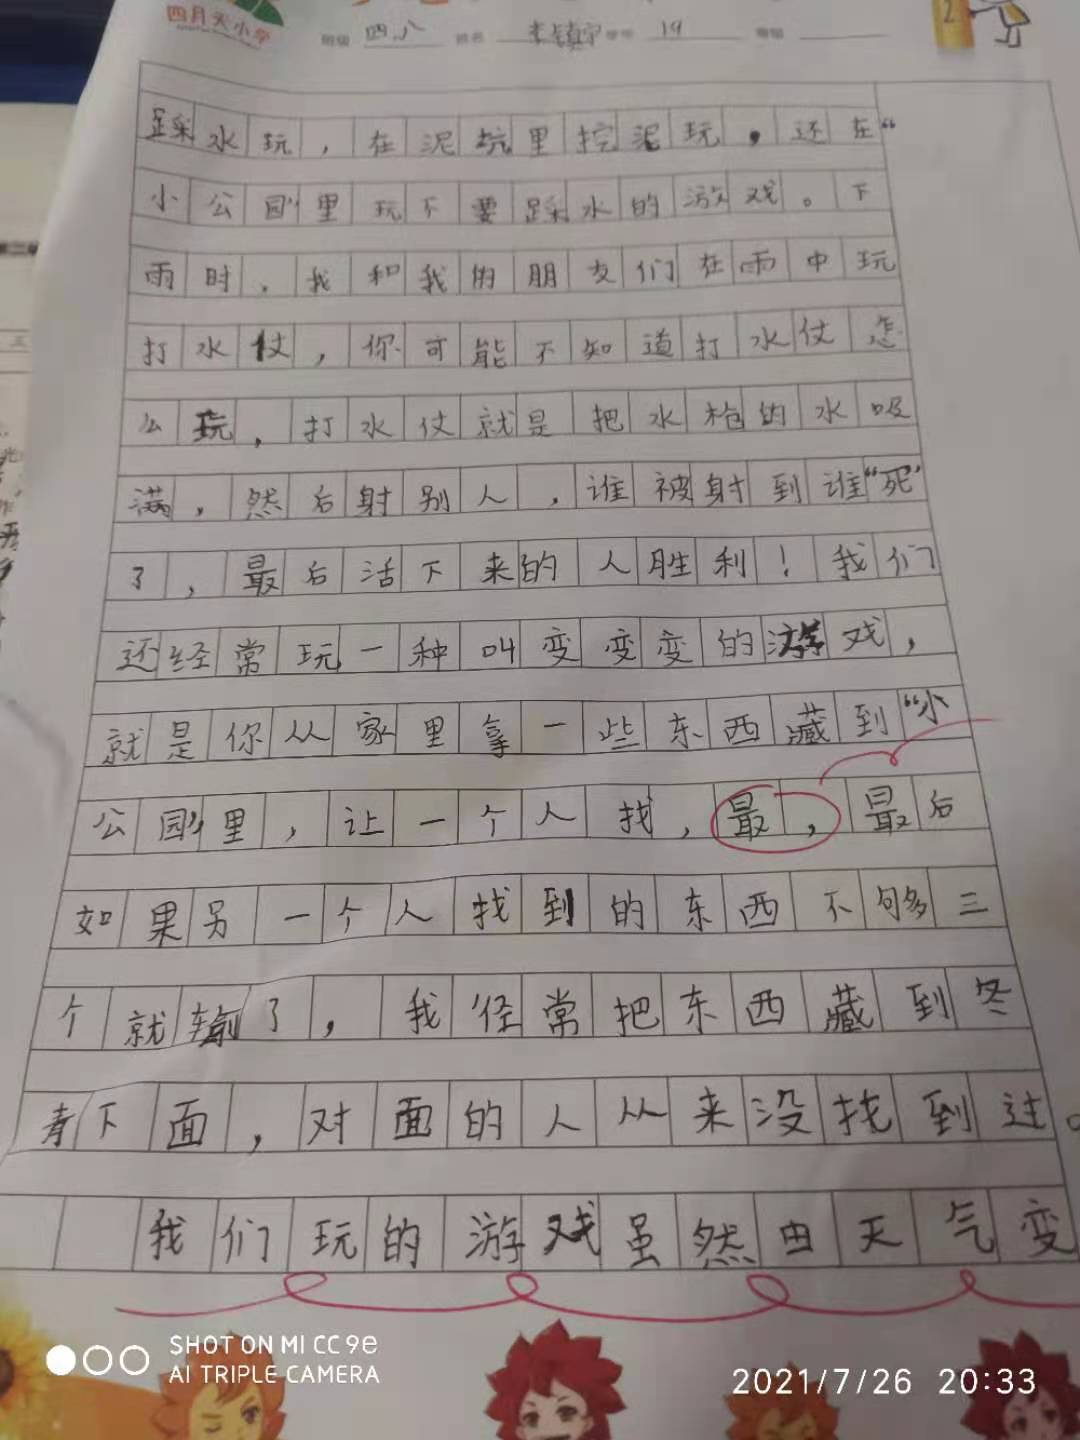 四月天小学
2
班级 四.八 姓名 李镇宇 学号 19 编辑
踩水玩，在泥坑里挖泥玩，还在“
小公园”里玩不要踩水的游戏。下
雨时，我和我的朋友们在雨中玩
打水仗，你可能不知道打水仗怎
么玩，打水仗就是把水枪的水吸
满，然后射别人，谁被射到谁“死”
了，最后活下来的人胜利！我们
还经常玩一种叫变变变的游戏，
就是你从家里拿一些东西藏到“小
公园”里，让一个人找，最，最后
如果另一个人找到的东西不够三
个就输了，我径常把东西藏到冬
青下面，对面的人从来没找到过。
我们玩的游戏虽然由天气变
SHOT ON MI CC 9e
AI TRIPLE CAMERA
2021/7/26 20:33